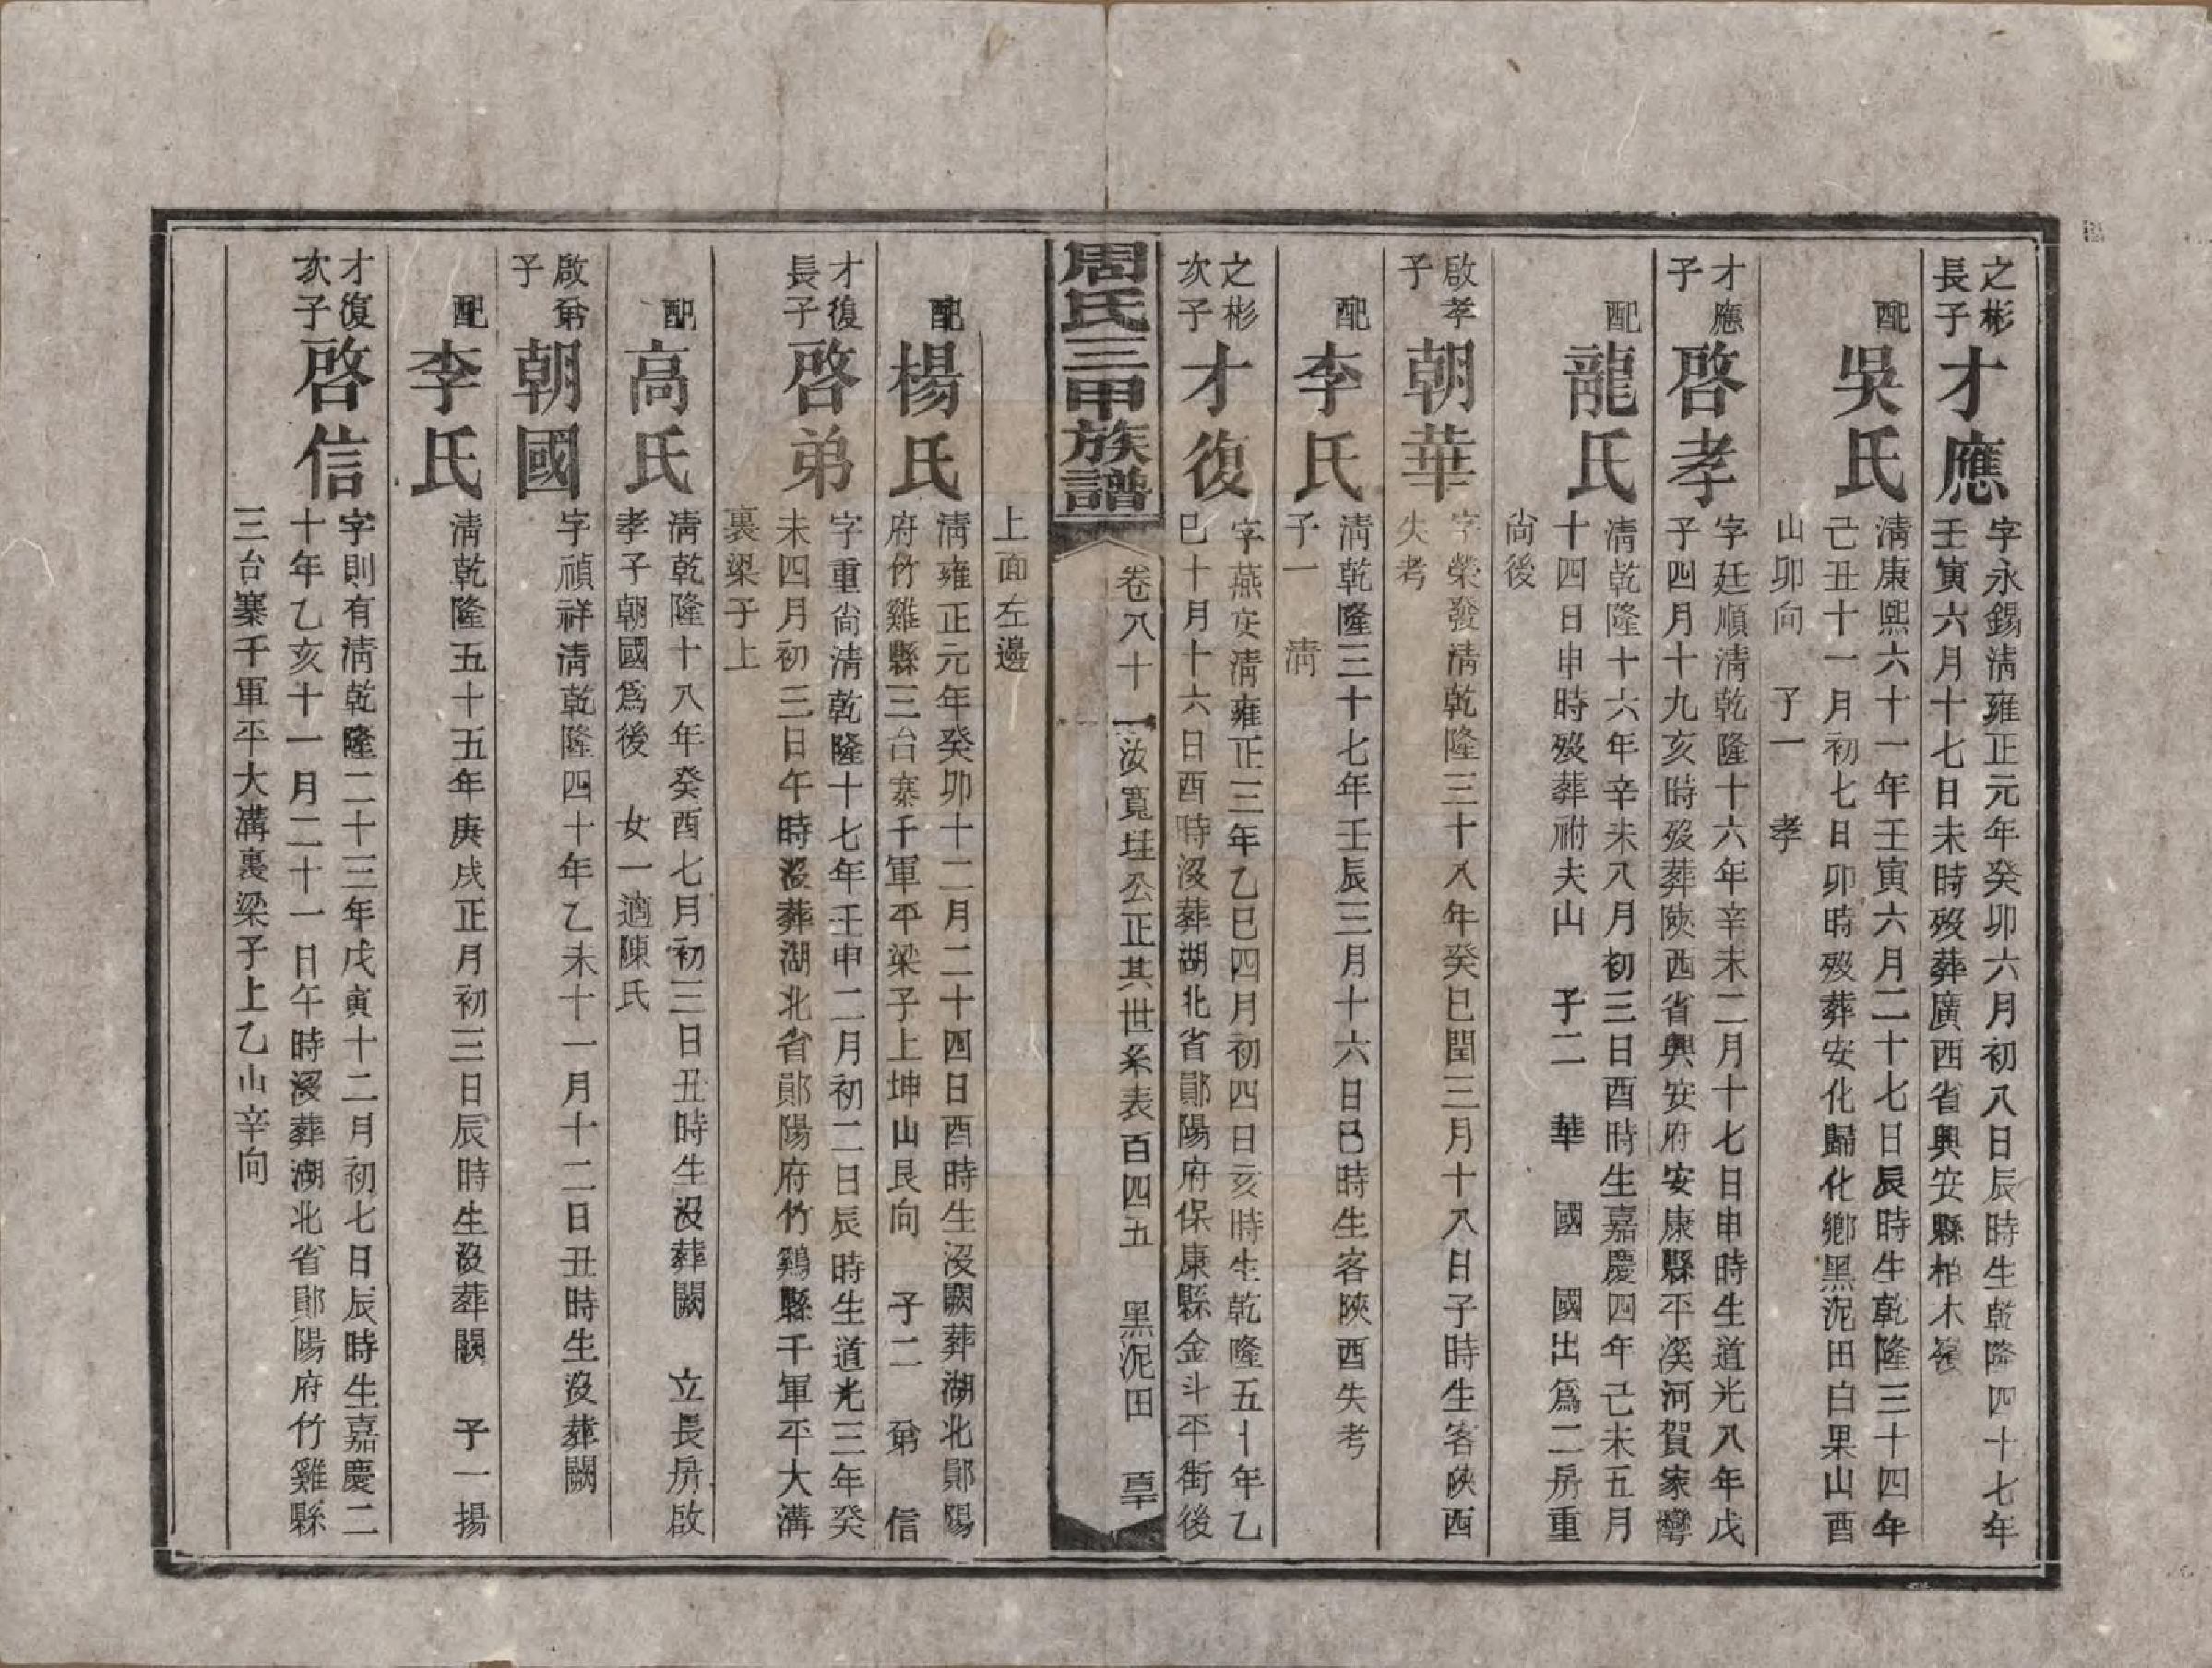 之彬
長子
才應
字永錫淸雍正元年癸卯六月初八日辰時生乾隆四十七年
壬寅六月十七日未時歿葬廣西省興安縣柏木
配
吳氏
淸康熙六十一年壬寅六月二十七日辰時生乾隆三十四年
己丑十一月初七日卯時歿葬安化歸化鄕黑泥田白果山酉
山卯向 子一 孝
才應
子
啓孝
字廷順淸乾隆十六年辛未二月十七日申時生道光八年戊
子四月十九亥時歿葬陝西省興安府安康縣平溪河賀家灣
配
龍氏
淸乾隆十六年辛未八月初三日酉時生嘉慶四年己未五月
十四日申時歿葬祔夫山 子二 華 國 國出爲二房重
尙後
啟孝
子
朝華
字榮發淸乾隆三十八年癸巳閏三月十八日子時生客陝西
失考
配
李氏
淸乾隆三十七年壬辰三月十六日巳時生客陝西失考
子一 淸
之彬
次子
才復
字燕安淸雍正三年乙巳四月初四日亥時生乾隆五十年乙
巳十月十六日酉時沒葬湖北省鄖陽府保康縣金斗平街後
周氏三甲族譜
卷八十一汝寬珪公正其世系表百四五 黑泥田
上面左邊
配
楊氏
淸雍正元年癸卯十二月二十四日酉時生沒闕葬湖北鄖陽
府竹雞縣三台寨千軍平梁子上坤山艮向 子二 弟 信
才復
長子
啓弟
字重尙淸乾隆十七年壬申二月初二日辰時生道光三年癸
未四月初三日午時沒葬湖北省鄖陽府竹鷄縣千軍平大溝
裏梁子上
配
高氏
淸乾隆十八年癸酉七月初三日丑時生沒葬闕 立長房啟
孝子朝國爲後 女一適陳氏
啟弟
子
朝國
字禎祥淸乾隆四十年乙未十一月十二日丑時生沒葬闕
配
李氏
淸乾隆五十五年庚戌正月初三日辰時生沒葬闕 子一揚
才復
次子
啓信
字則有淸乾隆二十三年戊寅十二月初七日辰時生嘉慶二
十年乙亥十一月二十一日午時沒葬湖北省鄖陽府竹雞縣
三台寨千軍平大溝裏梁子上乙山辛向